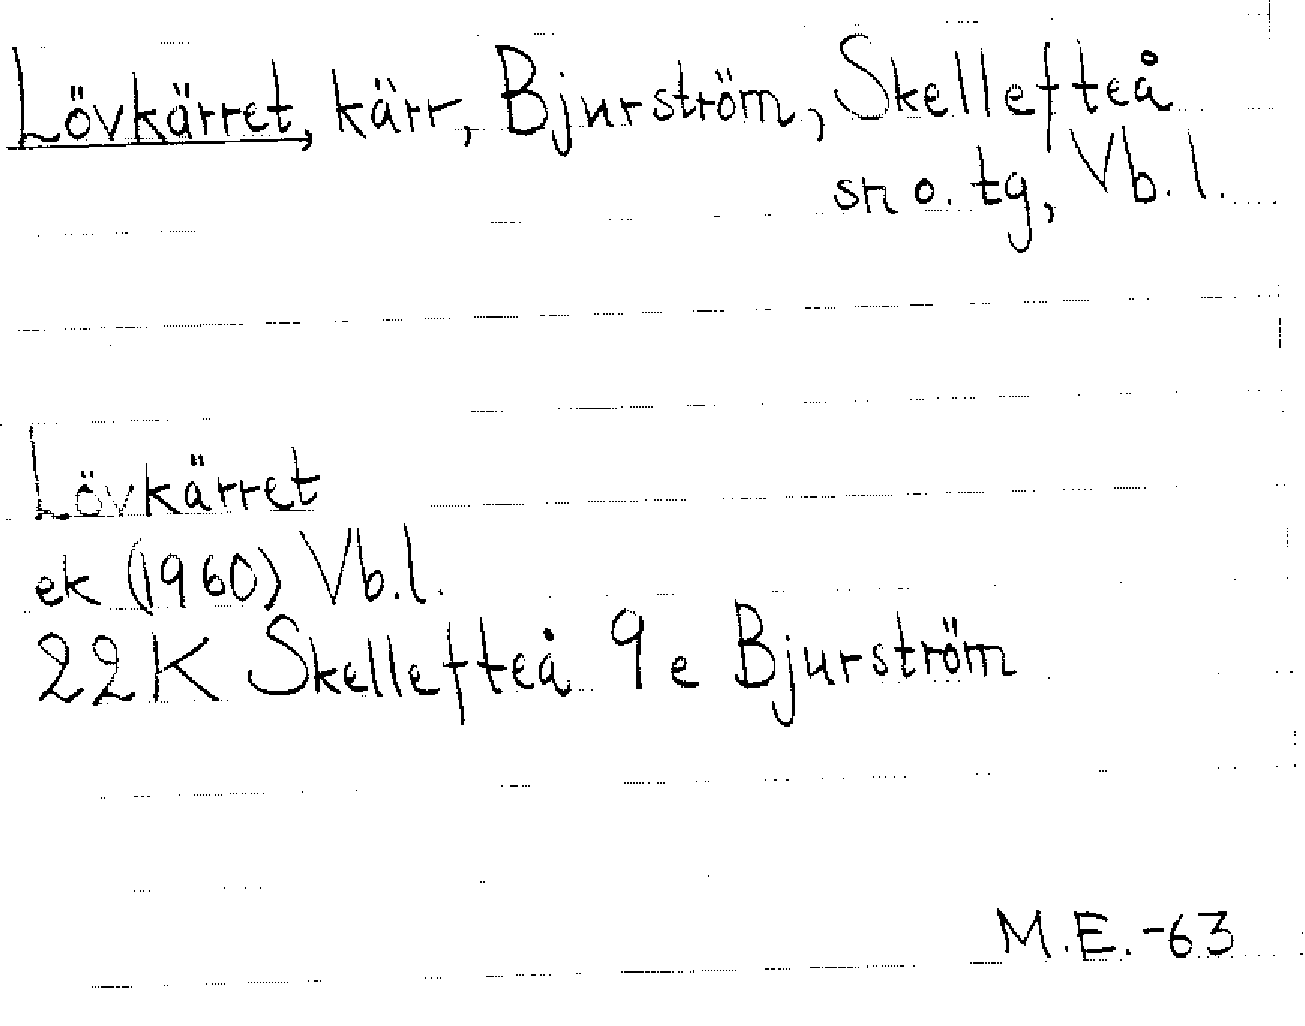 Lövkärret, kärr, Bjurström, Skellefteå
sn o. tg, Vb. l.
Lövkärret
ek (1960) Vb. l.
22K Skellefteå 9e Bjurström
M.E. -63